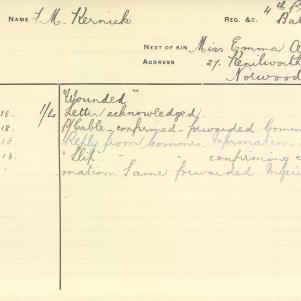 NAME F. M. Kernick REG. &C. 4th P
Ba
NEXT OF KIN Miss Emma
ADDRESS 27. Kenilworth
Norwood
"Wounded"
18. 1/4 Letter acknowledged.
18. A/Cable confirmed forwarded
18. Reply from Commis.
18. "Slip" " confirming
" mation. Same forwarded